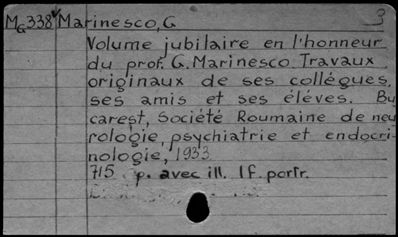 MG338 Marinesco, G 3
Volume jubilaire en l'honneur
du prof. G. Marinesco Travaux
originaux de ses collégues,
ses amis et ses éléves. Bu
carest, Société Roumaine de neu
rologie, psychiatrie et endocri-
nologie, 1933
715 p. avec ill. 1f. portr.